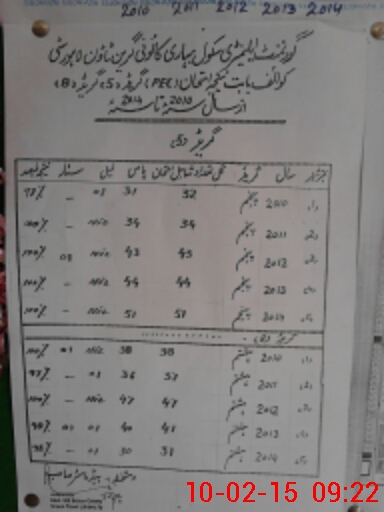 2010 2011 2012 2013 2014
گورنمنٹ ایلیمنٹری سکول بہاری کالونی گرین ٹاؤن لاہور سٹی
کوائف بابت نتیجہ امتحان (PEC) گریڈ (5) گریڈ (8)
از سال 2010 تا 2014
گریڈ (5)
نمبر شمار سال گریڈ کل تعداد شامل امتحان پاس فیل نتیجہ فیصد
1 2010 پنجم 32 31 01 - 97%
2 2011 پنجم 34 34 Nil - 100%
3 2012 پنجم 43 43 - 01 100%
4 2013 پنجم 44 44 Nil - 100%
5 2014 پنجم 51 51 Nil - 100%
گریڈ (8)
1 2010 ہشتم 38 38 Nil 01 100%
2 2011 ہشتم 37 36 - 97%
3 2012 ہشتم 47 47 Nil - 100%
4 2013 ہشتم 41 40 01 01 98%
5 2014 ہشتم 31 30 01 -
دستخط ہیڈ ماسٹر صاحب
10-02-15 09:22